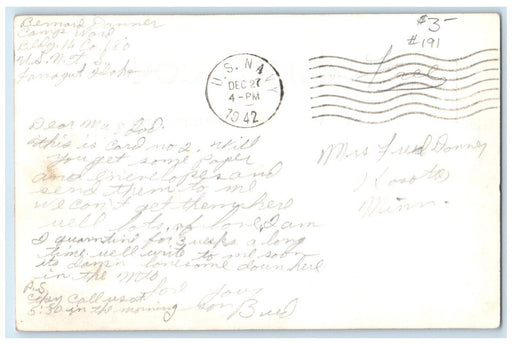 Bernard Donner
Camp Ward
Bldg. 16 Co. 680
U.S.N.T.S.
Farragut Idaho
$3-
#191
U.S. NAVY
DEC 27
4-PM
1942
Free
Dear Ma & Dad.
This is Card no 2. Will
you get some paper
and envelopes and
send them to me
we can't get them here
well lots of love, I am
I quarantin for 3 weeks a long
time well write to me soon
its damn lonesome down here
in the Mts.
Your
son Bud
P.S.
They call us at
5:30 in the morning
Mrs Fred Donner
Kasota
Minn.